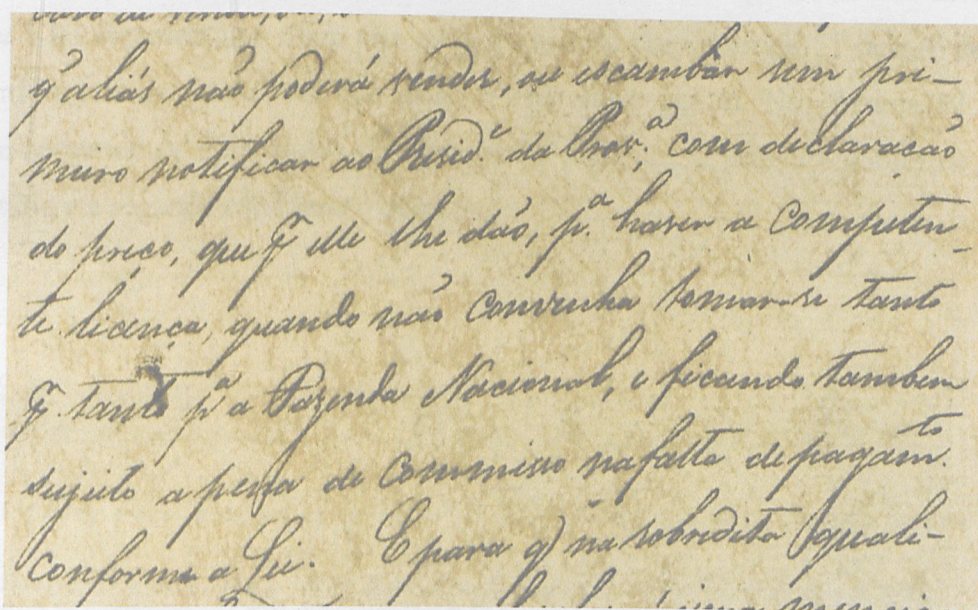 q̃ aliás não poderá vender, ou escambar sem pri-
meiro notificar ao Presid.e da Prov.a com declaração
do preço, que p̃ elle lhe dão, p.a haver a Competen-
te licença, quando não Convenha tomar-se tanto
p̃ tanto p.a a Fazenda Nacional, e ficando tambem
sujeito a pena de Commisso na falta de pagam.to
conforme a Lei. E para q̃ na sobredita quali-